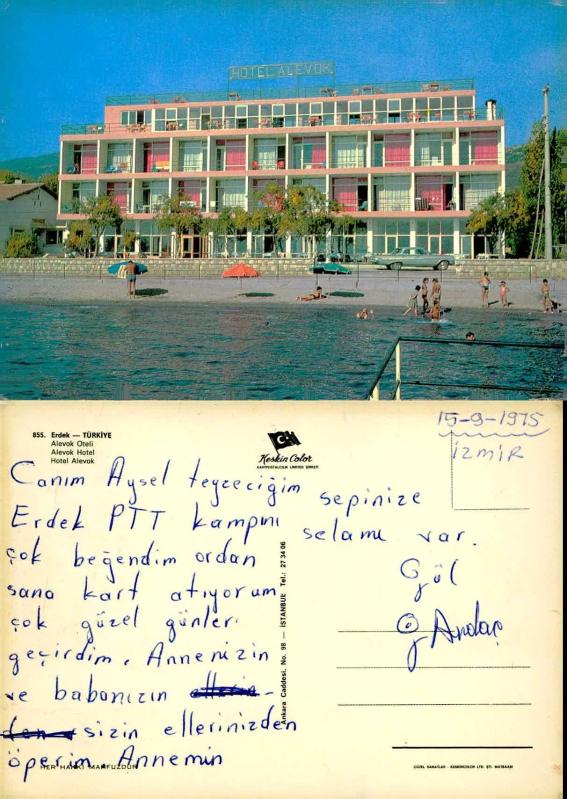 HOTEL ALEVOK
855. Erdek — TÜRKİYE
Alevok Oteli
Alevok Hotel
Hotel Alevok
Keskin Color
KARTPOSTALCILIK LIMITED ŞİRKETİ
15-9-1975
İZMİR
Canım Aysel teyzeciğim
Erdek PTT kampını
çok beğendim ordan
sana kart atıyorum
çok güzel günler
geçirdim. Annenizin
ve babanızın
sizin ellerinizden
öperim. Annemin
sepinize
selamı var.
Gül
Andaç
Ankara Caddesi, No. 98 — İSTANBUL Tel.: 27 34 06
HER HAKKI MAHFUZDUR
GÜZEL SANATLAR - KESKİNCOLOR LTD. ŞTİ. MATBAASI